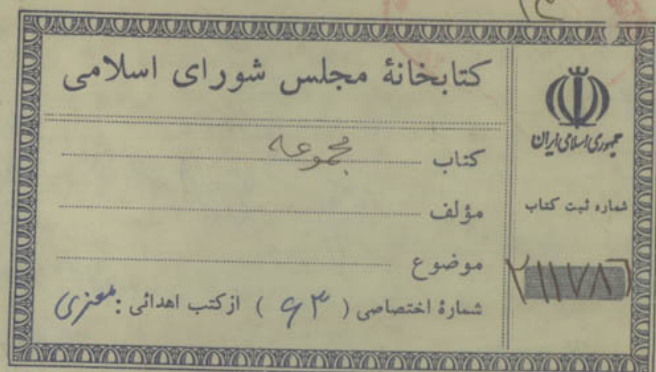 کتابخانهٔ مجلس شورای اسلامی
کتاب مجموعه
مؤلف
موضوع
شمارهٔ اختصاصی ( ۶۳ ) از کتب اهدائی : معزی
جمهوری اسلامی ایران
شماره ثبت کتاب
۲۱۱۷۸۶